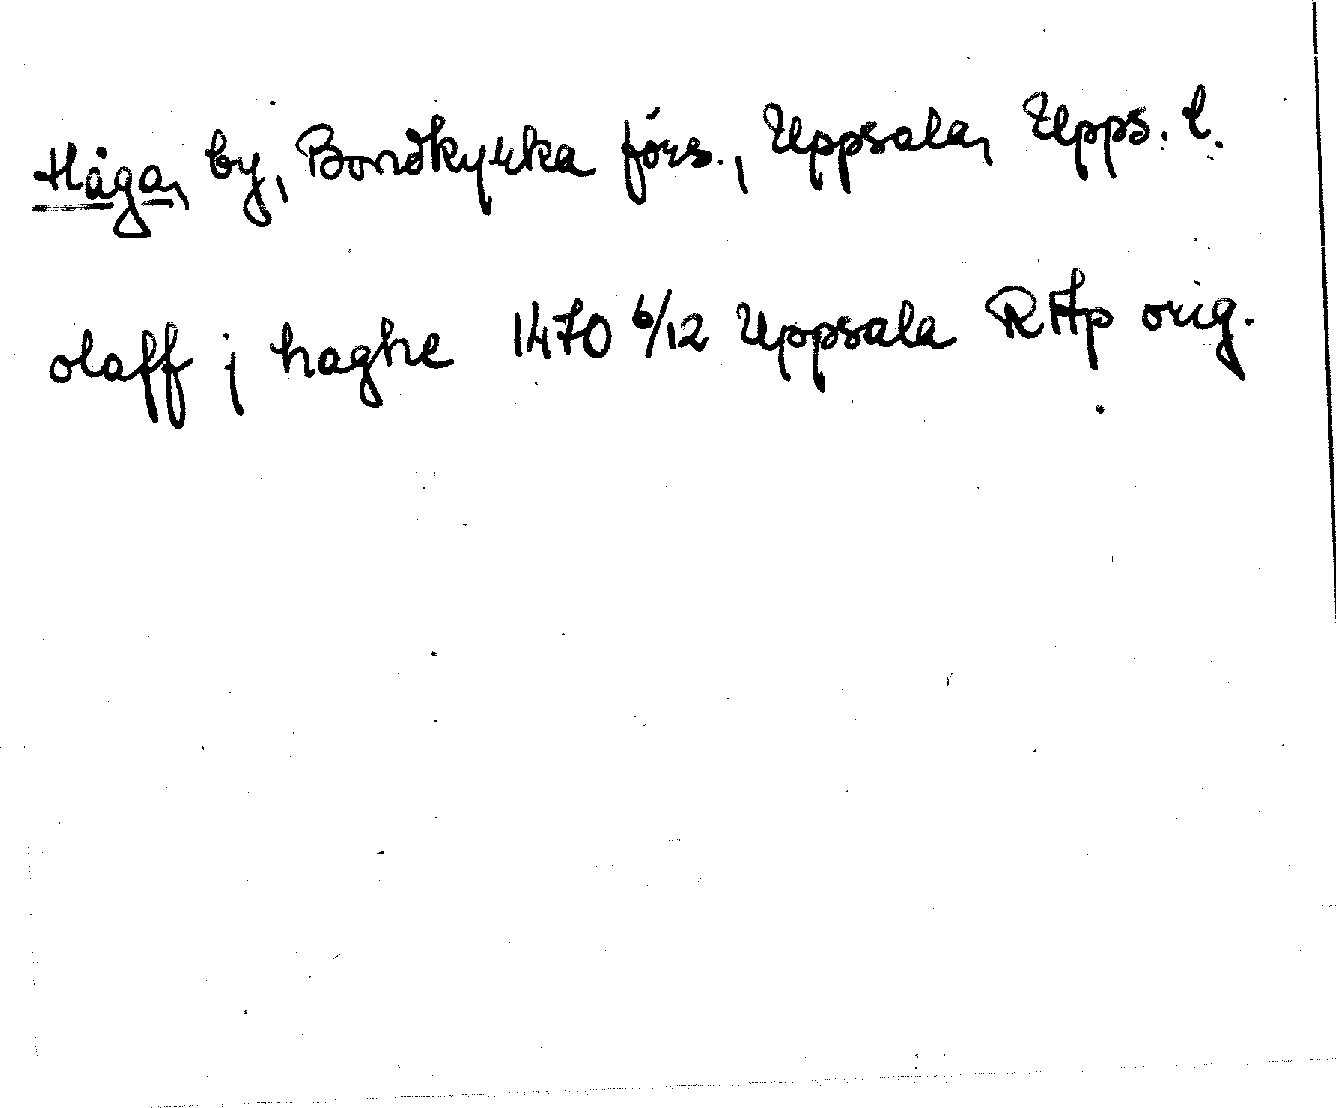 Håga, by, Bondkyrka förs., Uppsala, Upps. l.
olaff j haghe 1470 6/12 Uppsala RAp orig.